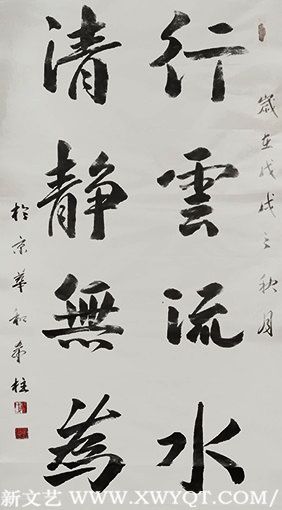 歲在戊戌之秋月
行雲流水
清静無為
於京華和柱
新文艺 WWW.XWYQT.COM/